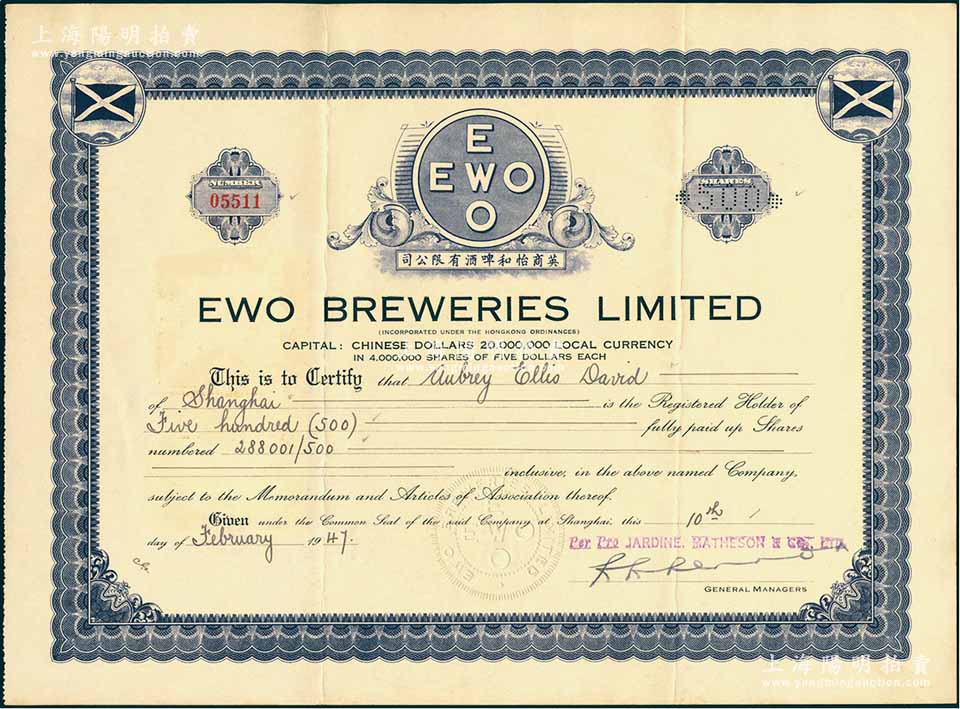 上海陽明拍賣
www.yangmingauction.com
NUMBER
05511
E
EWO
O
SHARES
500
司公限有酒啤和怡商英
EWO BREWERIES LIMITED
(INCORPORATED UNDER THE HONGKONG ORDINANCES)
CAPITAL: CHINESE DOLLARS 20,000,000 LOCAL CURRENCY
IN 4,000,000 SHARES OF FIVE DOLLARS EACH
This is to Certify that Aubrey Ellis David
of Shanghai is the Registered Holder of
Five hundred (500) fully paid up Shares
numbered 288001/500
inclusive, in the above named Company,
subject to the Memorandum and Articles of Association thereof.
Given under the Common Seal of the said Company at Shanghai, this 10th
day of February 1947.
Per Pro JARDINE, MATHESON & CO., LTD.
GENERAL MANAGERS
上海陽明拍賣
www.yangmingauction.com